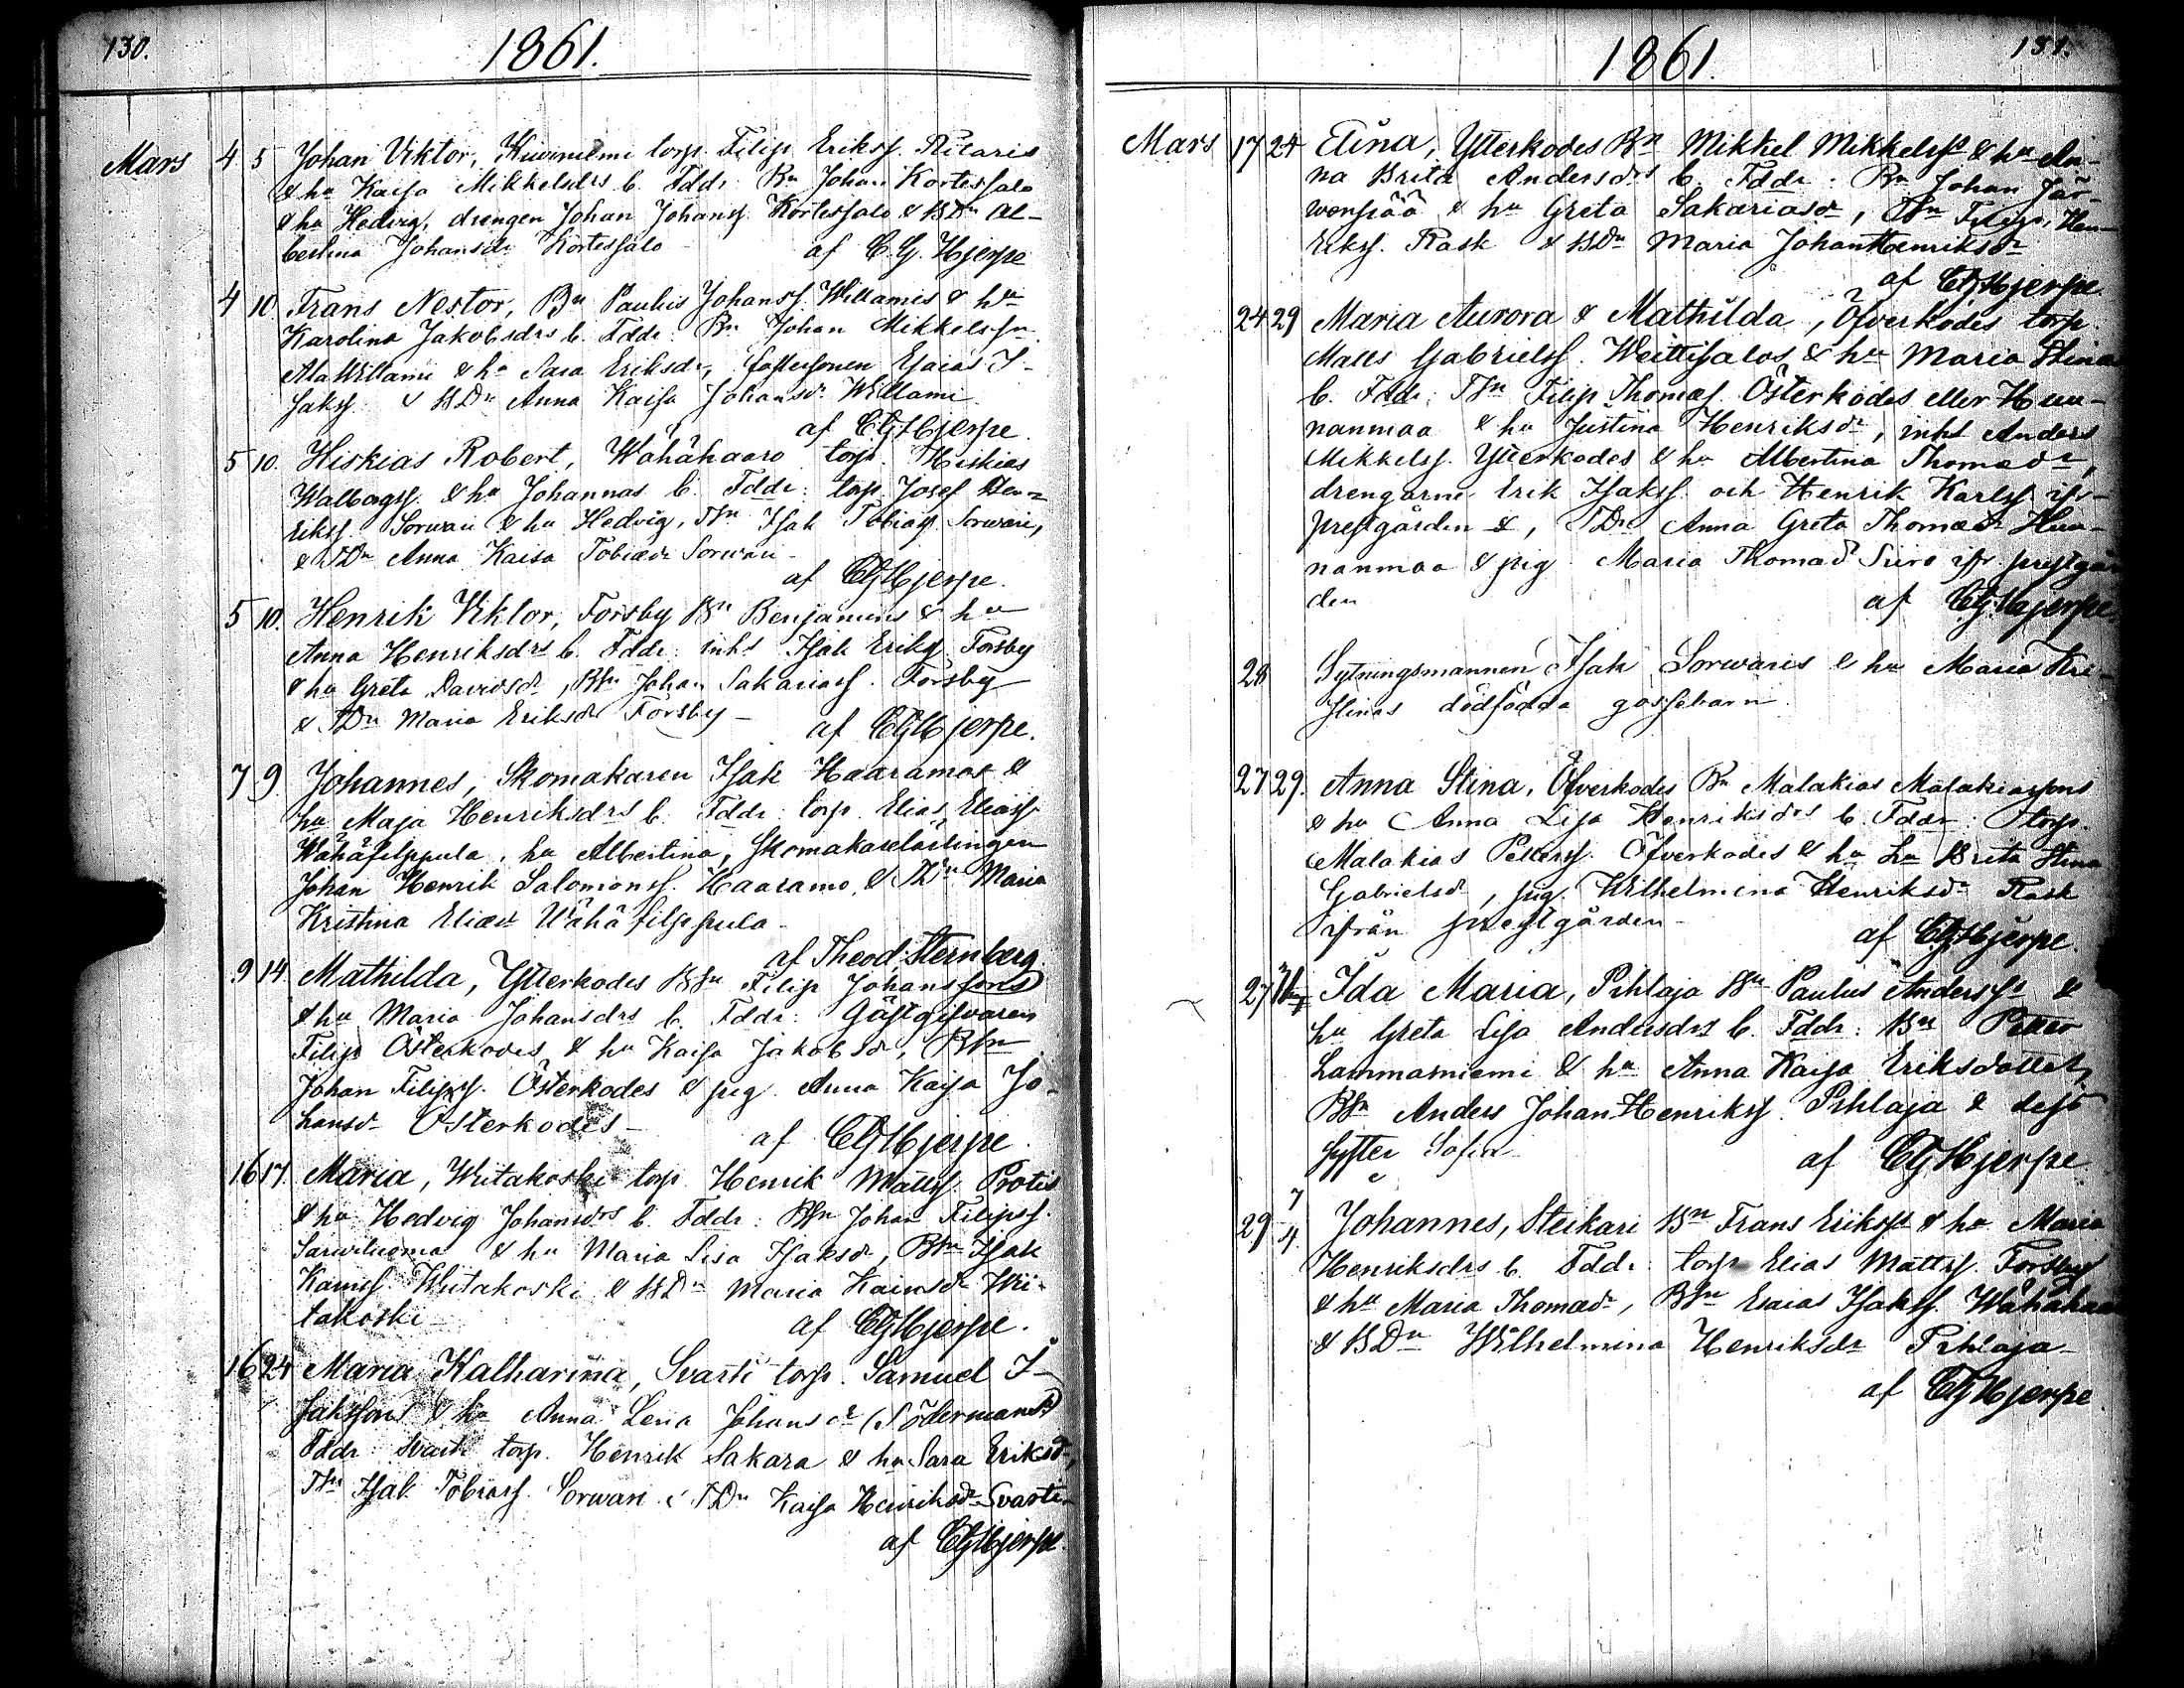 130.
1861.
Mars 4 5 Johan Viktor, Kiviniemi torp. Filip Erikss. Rilaris
& hu Kaisa Mikkelsdrs b. Fddr: Bn Johan Kortessalo
& hu Hedvig, drengen Johan Johanss. Kortessalo & BDn Al-
bertina Johansdr Kortessalo
af C.G. Hjerpe
4 10 Frans Nestor, Bn Paulus Johanss. Willamis & hu
Karolina Jakobsdrs b. Fddr: Bn Johan Mikkelsson
AlaWillami & hu Sara Eriksdr, fostersonen Esaias I-
saks. & BDn Anna Kaisa Johansdr Willami
af CGHjerpe.
5 10. Hiskias Robert, Wähähaaro torp. Hiskias
Walborgss. & hu Johannas b. Fddr: torp. Josef Hen-
rikss. Sorwari & hu Hedvig, TSn Isak Tobiass. Sorwari,
& TDn Anna Kaisa Tobiædr Sorwari
af CGHjerpe.
5 10. Henrik Viktor, Forsby Bn Benjamins & hu
Anna Henriksdrs b. Fddr: inhs Isak Eriks. Forsby
& hu Greta Davidsdr, BSn Johan Sakariass. Forsby
& TDn Maria Eriksdr Forsby
af CGHjerpe.
7 9 Johannes, Skomakaren Isak Haaramos &
hu Maja Henriksdrs b. Fddr: torp. Elias Eliass
Wähäfilppula, hu Albertina, Skomakarelärlingen
Johan Henrik Salomonss. Haaramo, & TDn Maria
Kristina Eliædr Wähäfilppula
af Theod. Sternberg.
9 14. Mathilda, Ytterkodes BSn Filip Johanssons
& hu Maria Johansdrs b. Fddr: Gästgifvaren
Filip Österkodes & hu Kaisa Jakobsdr, BSn
Johan Filipss. Österkodes & pig. Anna Kaisa Jo-
hansdr Österkodes
af CGHjerpe.
16 17. Maria, Wiitakoski torp Henrik Mattss. Protis
& hu Hedvig Johansdrs b. Fddr: BSn Johan Filipss.
Sarwiluoma & hu Maria Lisa Isaksdr, BSn Isak
Kaims. Wiitakoski & BDn Maria Kaimsdr Wii-
takoski
af CGHjerpe.
16 24 Maria Katharina, Svarti torp. Samuel I-
saksons & hu Anna Lena Johansdr (Södermans)
Fddr: Svarti torp. Henrik Sakara & hu Sara Eriksdr,
TSn Isak Tobiass. Sorwari & TDn Kaisa Henriksdr Svarti
af CGHjerpe.
1861.
131.
Mars 17 24 Elina, Ytterkodes Bn Mikkel Mikkelss & hu An-
na Brita Andersdrs b. Fddr: Bn Johan Jär-
wenpää & hu Greta Sakariasdr, TSn Filip Hen-
rikss. Rask & BDn Maria JohanHenriksdr
af CGHjerpe.
24 29 Maria Aurora & Mathilda, Öfverkodes torp.
Matts Gabrielss. Weittisalos & hu Maria Stinas
b. Fddr: TSn Filip Thomæs. Österkodes eller Huu-
nanmaa & hu Justina Henriksdr, inhs Anders
Mikkelss. Ytterkodes & hu Albertina Thomædr,
drengarne Erik Isakss. och Henrik Karlss ifr.
prestgården &, TDn Anna Greta Thomædr Huu-
nanmaa & pig. Maria Thomædr Siiro ifr. prestgår
den
af CGHjerpe.
28 Sytningsmannen Isak Sorwaris & hu Maria Kri-
stinas dödfödda gossebarn.
27 29. Anna Stina, Öfverkodes Bn Malakias Malakiassons
& hu Anna Lisa Henriksdrs b. Fddr: torp.
Malakias Petterss. Öfverkodes & hu hu Brita Stina
Gabrielsdr, pig. Wilhelmina Henriksdr Rask
ifrån prestgården
af CGHjerpe.
27 Ida Maria, Pihlaja Bn Paulus Anderss &
hu Greta Lisa Andersdrs b. Fddr: Bn Petter
Lammasniemi & hu Anna Kaisa Eriksdotter,
BSn Anders Johan-Henrikss. Pihlaja & dess
syster Sofia
af CGHjerpe
29 7/4 Johannes, Steikari Bn Frans Erikss & hu Maria
Henriksdrs b. Fddr: torp Elias Mattss. Forsby
& hu Maria Thomædr, BSn Esaias Isakss. Wähähaa
& BDn Wilhelmina Henriksdr Pihlaja
af CGHjerpe